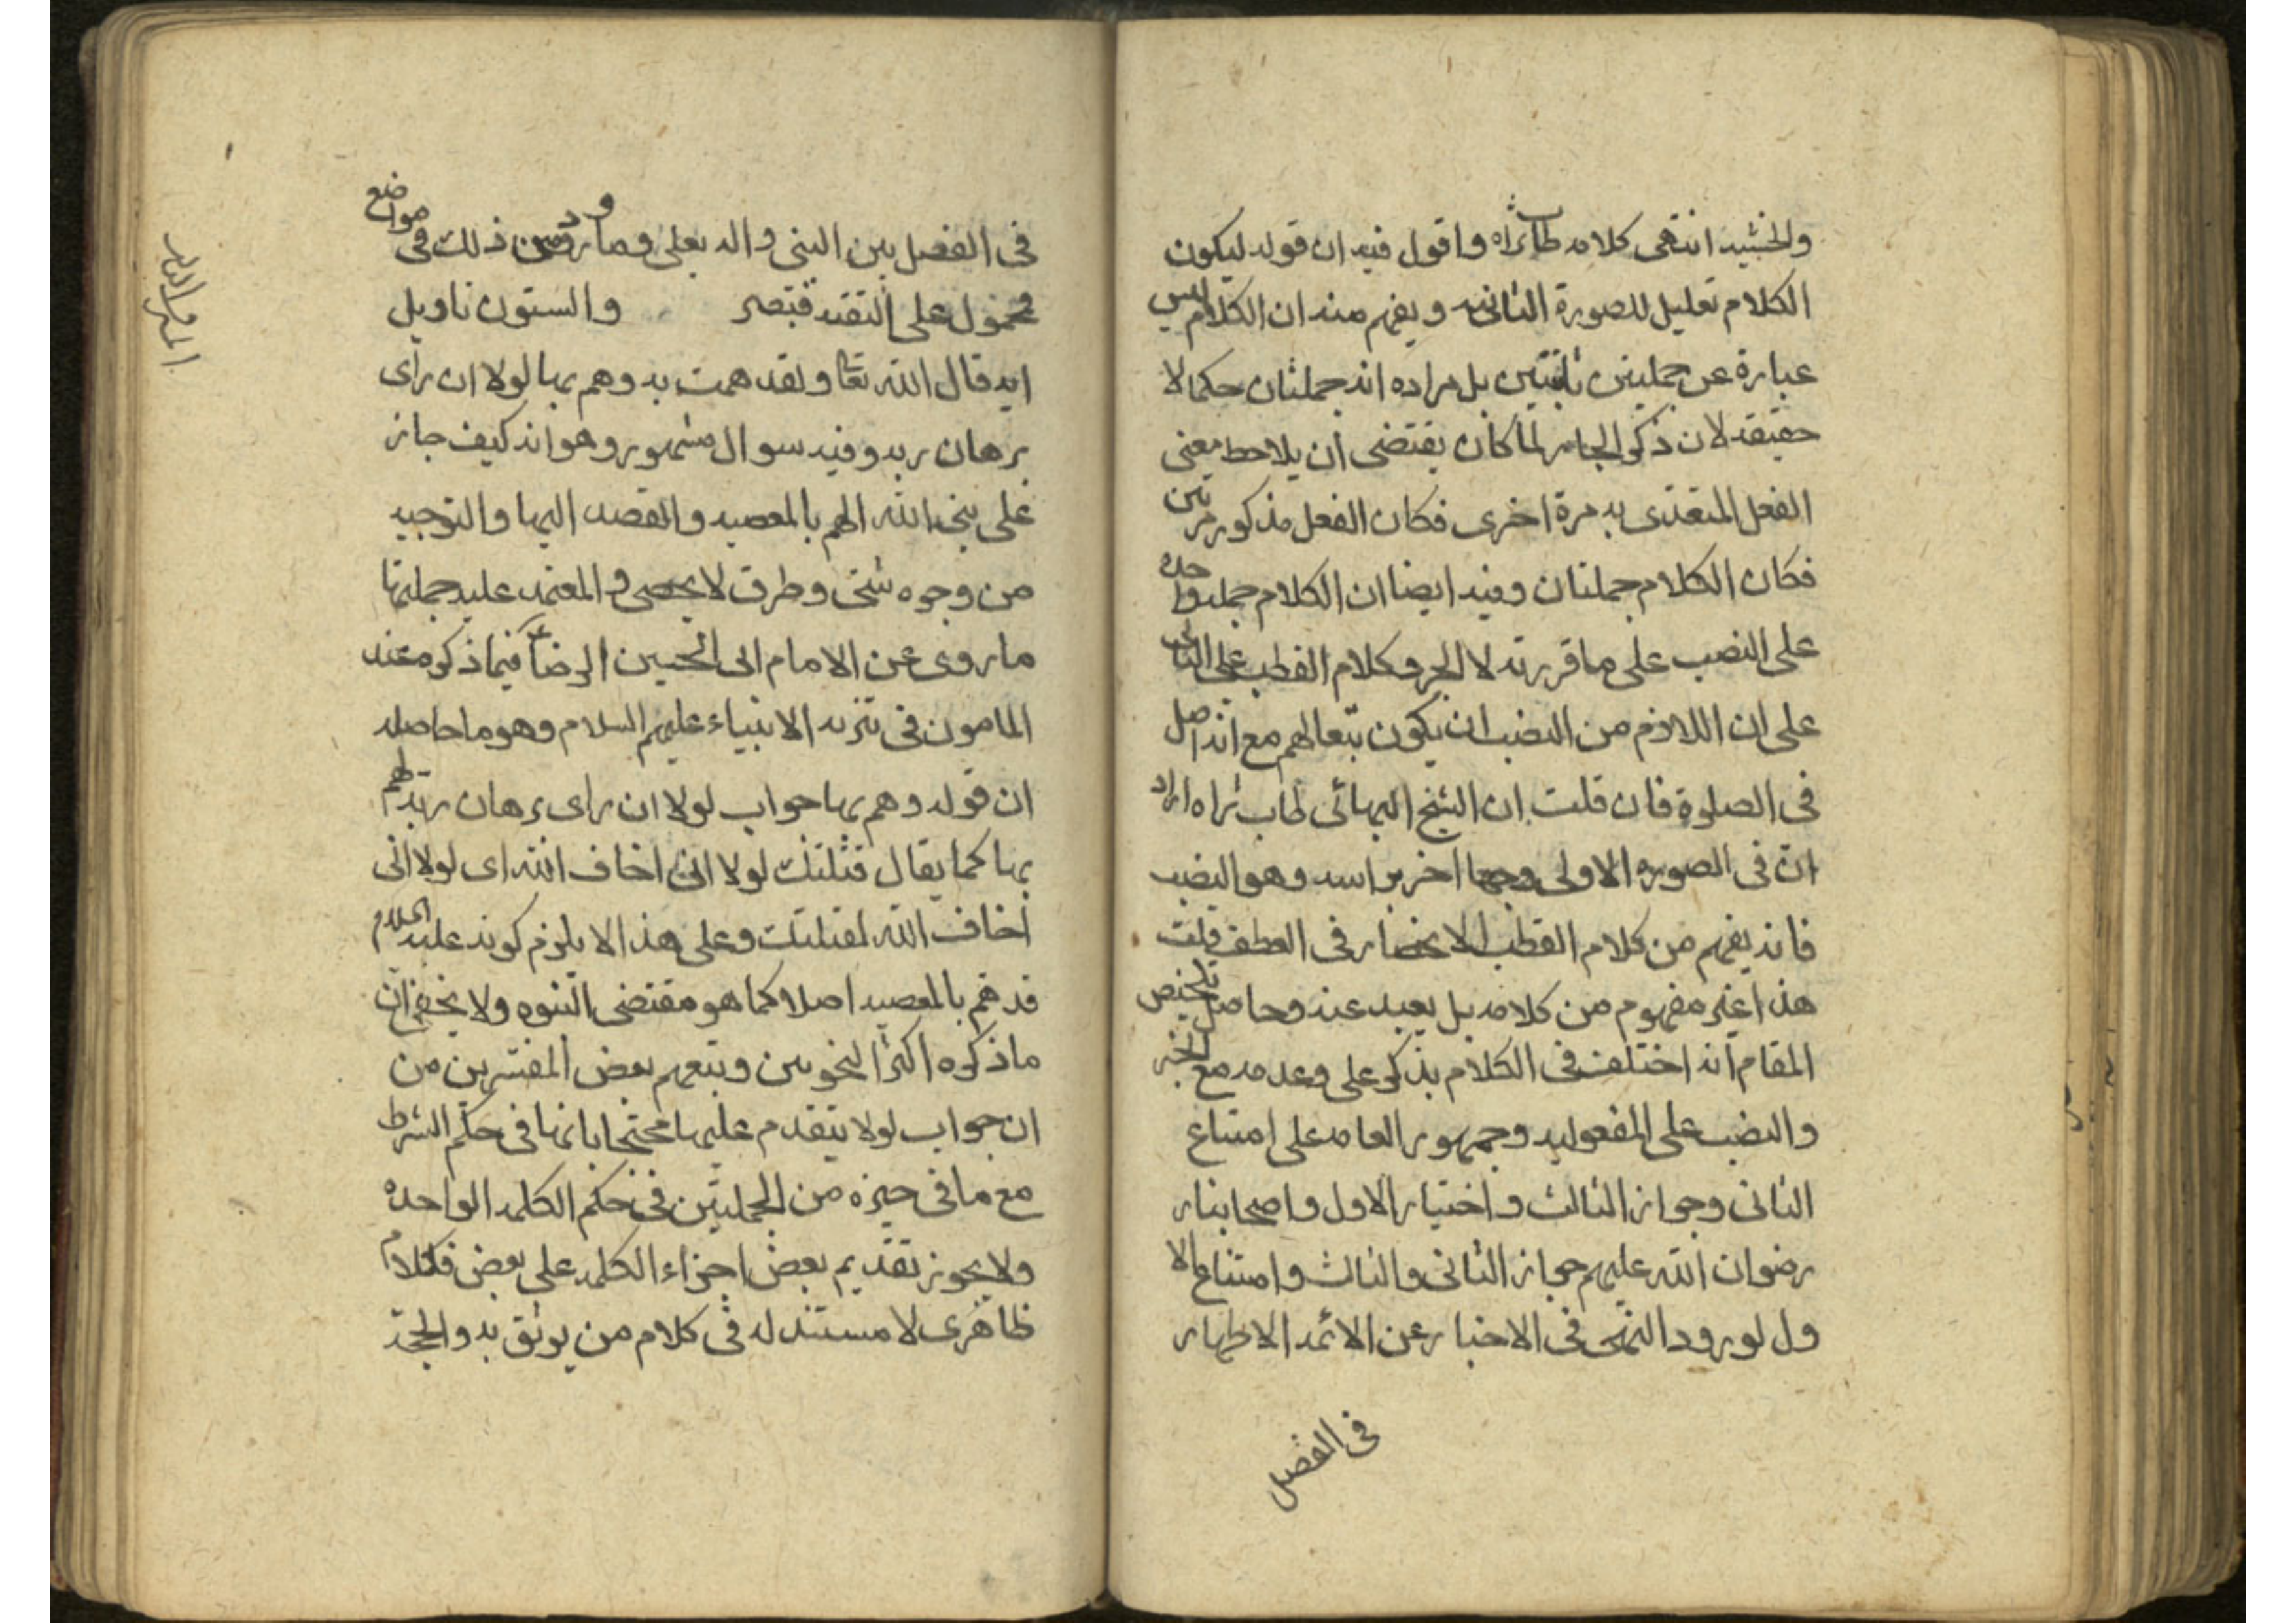 والخشيه انتهى كلامه طاب ثراه واقول فيه ان قوله ليكون
الكلام تعليل للصورة الثانيه ويفهم منه ان الكلام ليس
عبارة عن جملتين بل مراده انه جملتان حكما لا
حقيقه لان ذكر الجار لما كان يقتضى ان يلاحظ معنى
الفعل المتعدى به مرة اخرى فكان الفعل مذكور مرتين
فكان الكلام جملتان وفيه ايضا ان الكلام جمله واحده
على النصب على ما قررته لا الجر وكلام القطب على الثانى
على ان اللازم من النصب ان يكون تبعا لهم مع انه اصل
فى الصلوة فان قلت ان الشيخ البهائى طاب ثراه اراد
ان فى الصوره الاولى وجها اخر براسه وهو النصب
فانه يفهم من كلام القطب الانحصار فى العطف قلت
هذا غير مفهوم من كلامه بل بعيد عنه وحاصل تلخيص
المقام انه اختلف فى الكلام بذكر على وعدمه مع الجر
والنصب على المفعوليه وجمهور العامه على امتناع
الثانى وجواز الثالث واختيار الاول واصحابنا
رضوان الله عليهم جواز الثانى والثالث وامتناع الا
ول لورود النهى فى الاخبار عن الائمه الاطهار
فى الفصل
فى الفصل بين النبى واله بعلى وما ورد من ذلك فى مواضع
محمول على التقيه فتبصر والستون تاويل
ايه قال الله تعا ولقد همت به وهم بها لولا ان راى
برهان ربه وفيه سوال مشهور وهو انه كيف جاز
على نبى الله الهم بالمعصيه والقصد اليها والتوجيه
من وجوه شتى وطرق لا يحصى والمعتمد عليه جملتها
ما روى عن الامام ابى الحسين الرضا ع فيما ذكره عند
المامون فى تنزيه الانبياء عليهم السلام وهو ما حاصله
ان قوله وهم بها جواب لولا ان راى برهان ربه لهم
بها كما يقال قتلتك لولا انى اخاف الله اى لولا انى
اخاف الله لقتلتك وعلى هذا لا يلزم كونه عليه السلام
قد هم بالمعصيه اصلا كما هو مقتضى النبوه ولا يخفى ان
ما ذكره اكثر النحويين وتبعهم بعض المفسرين من
ان جواب لولا يتقدم عليها محتجا بانها فى حكم الشرط
مع ما فى حيزه من الجملتين فى حكم الكلمه الواحده
ولا يجوز تقديم بعض اجزاء الكلمه على بعض فكلام
ظاهرى لا مستند له فى كلام من يوثق به والحجة